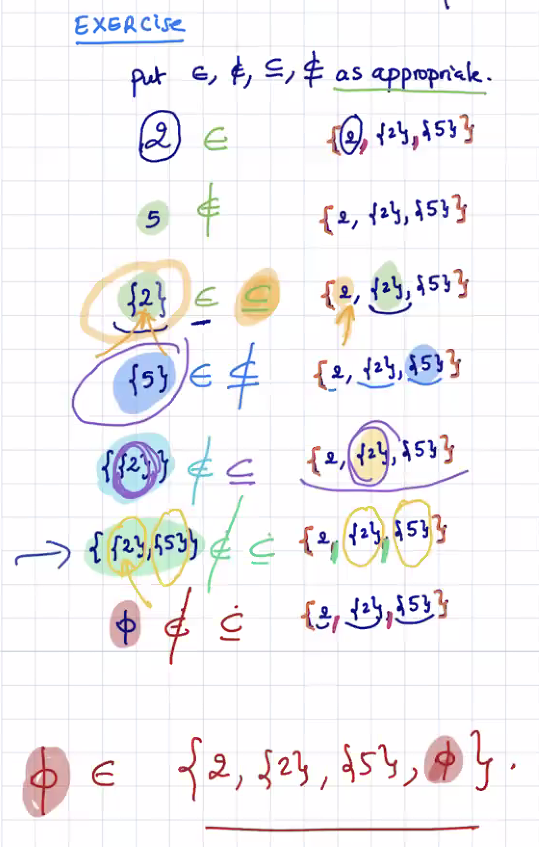 EXERCISE
Put ∈, ∉, ⊆, ⊈ as appropriate.
2 ∈ {2, {2}, {5}}
5 ∉ {2, {2}, {5}}
{2} ∈ ⊆ {2, {2}, {5}}
{5} ∈ ⊈ {2, {2}, {5}}
{{2}} ∉ ⊆ {2, {2}, {5}}
{{2}, {5}} ∉ ⊆ {2, {2}, {5}}
ϕ ∉ ⊆ {2, {2}, {5}}
ϕ ∈ {2, {2}, {5}, ϕ}.